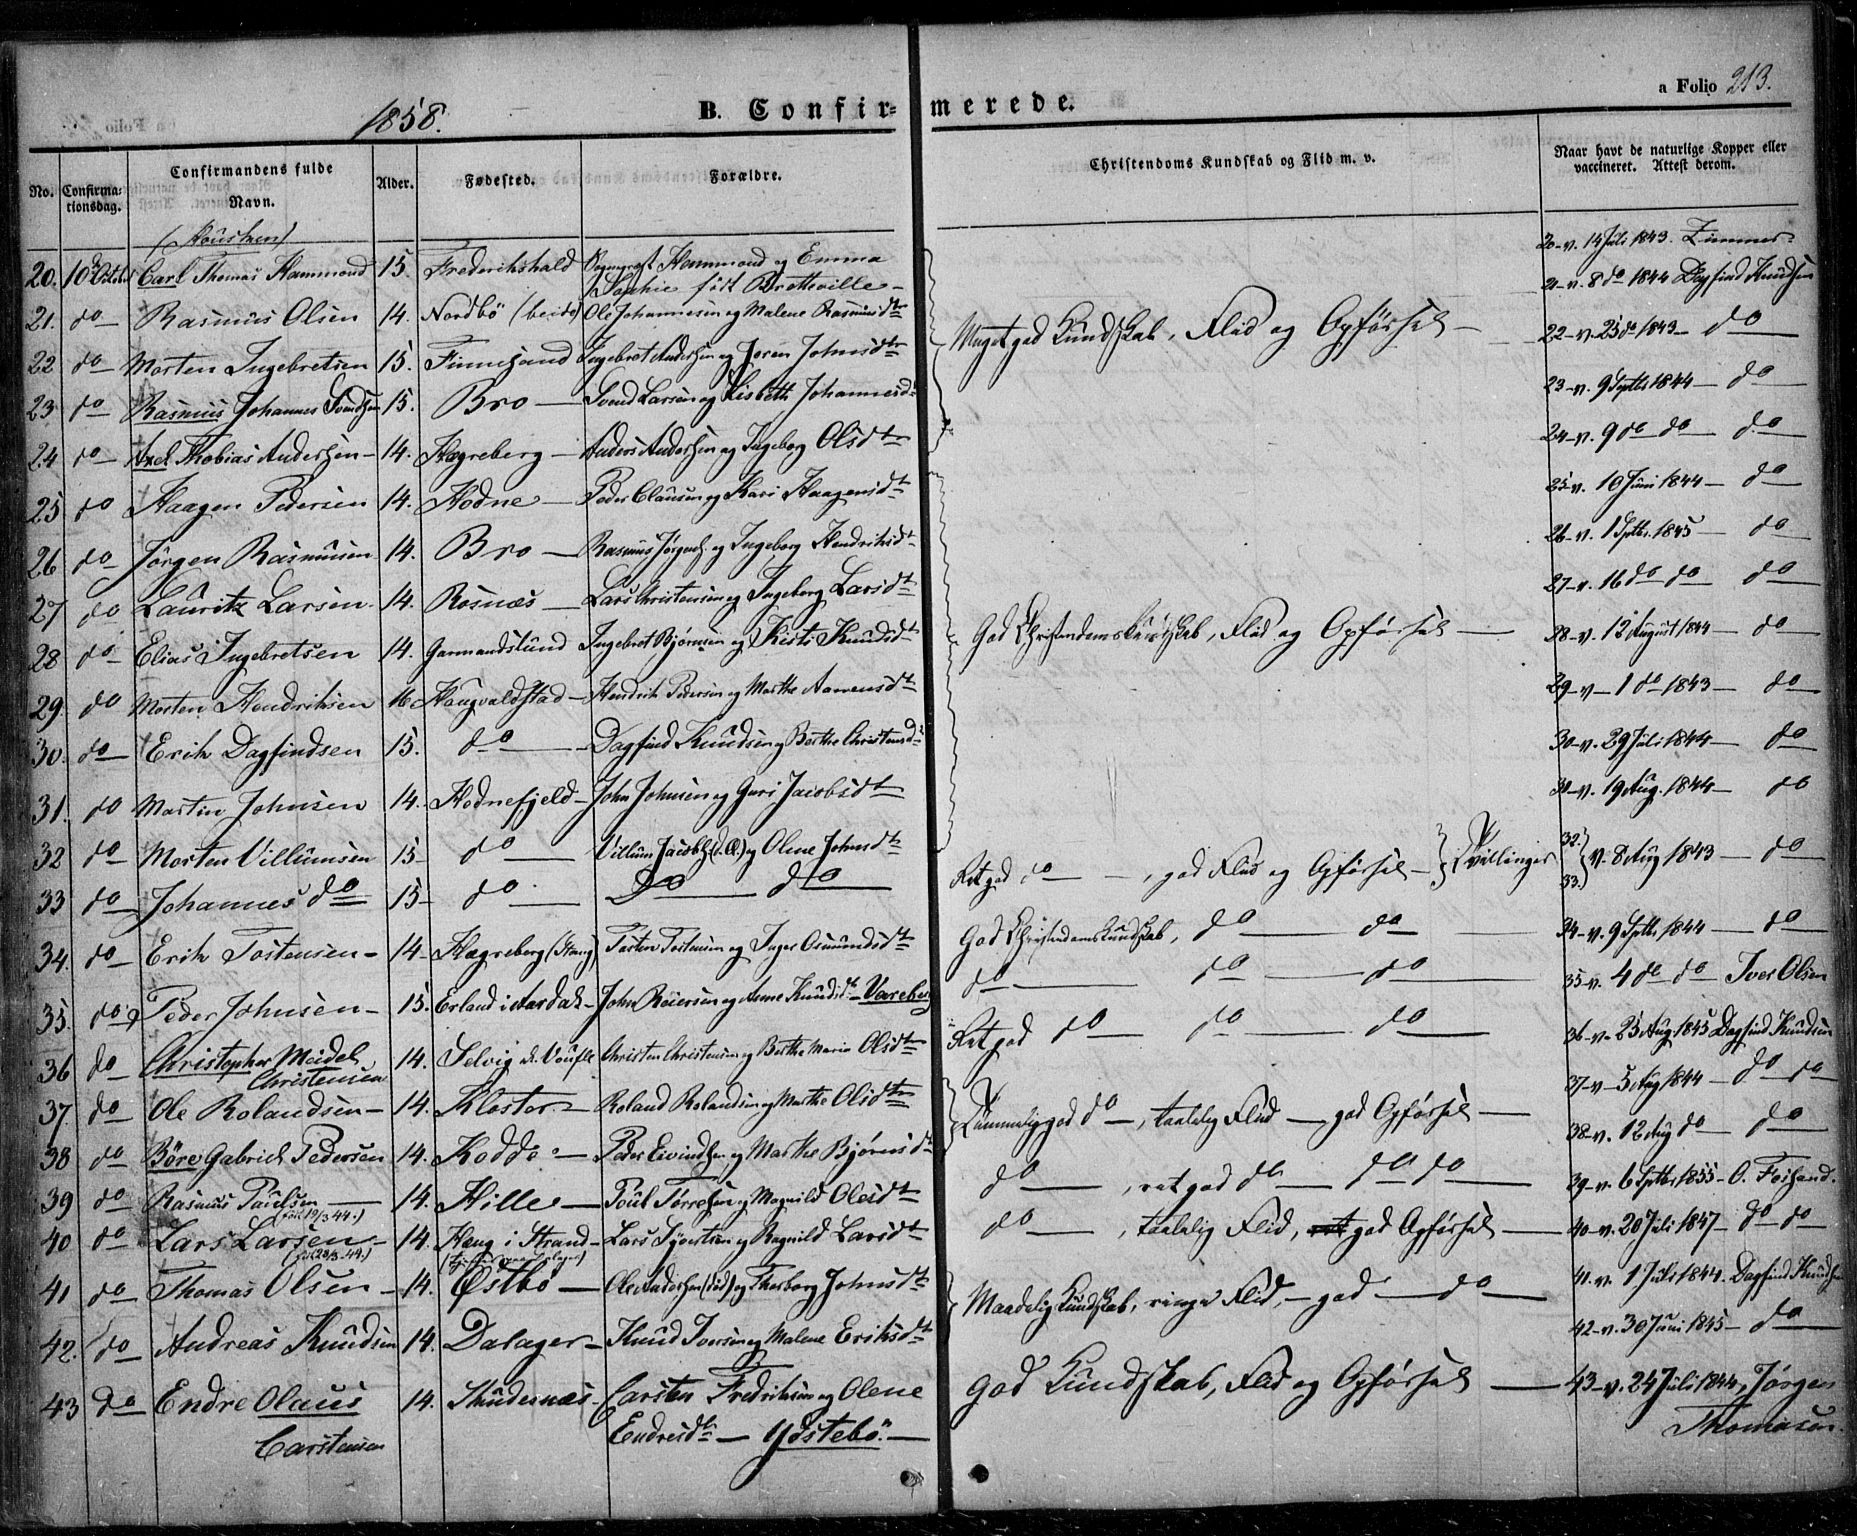 1858.
B. Confirmerede.
a Folio 213.
No.
Confirmationsdag.
Confirmandens fulde Navn.
Alder.
Fødested.
Forældre.
Christendoms Kundskab og Flid m. v.
Naar havt de naturlige Kopper eller vaccineret. Attest derom.
20. 10 Octobr Carl Thomas Hammond 15. Frederikshald Hammond og Emma
Sophie født Bretteville
20-v. 14 Juli 1843. Zimmer
21. do Rasmus Olsen 14. Nordbö Ole Johannesen og Malene Rasmusdtr
21-v. 8 do 1844 Dagfind Knudsen
22 do Morten Ingebretsen 15. Finnesand Ingebret Andersen og Johnsdtr
Meget god Kundskab, Flid og Opførsel
22-v. 25 do 1843 do
23 do Rasmus Johannes Svendsen 15. Bro Svend Larsen og Lisbeth Johannesd
23-v. 9 Septbr 1844 do
24 do Axel Thobias Andersen 14. Hægreberg Anders Andersen og Ingeborg Olsdtr
24-v. 9 do do do
25 do Haagen Pedersen 14. Hodne Peder Clausen og Kari Haagensdtr
25-v. 10 Juni 1844 do
26 do Jörgen Rasmusen 14. Bro Rasmus Jörgens. og Ingeborg Hendriksdt
26-v. 1 Septbr. 1845 do
27 do Lauritz Larsen 14. Rosnæs Lars Christensen og Ingeborg Larsdt
27-v. 16 do do do
28 do Elias Ingebretsen 14. Garmandslund Ingebret Bjørnsen og Kisti Knudsdt
God Christendomskundskab, Flid og Opførsel
28-v. 12 August 1844 do
29 do Morten Hendriksen 16 Haugvaldstad Hendrik Pedersen og Marthe Aanensdt
29-v 1 do 1843 do
30. do Erik Dagfindsen 15. do Dagfind Knudsen og Berthe Christensd
30-v. 29 Juli 1844 do
31. do Martin Johnsen 14. Hodnefjeld John Johnsen og Guri Jacobsdt
31-v. 19 Aug. 1844 do
32 do Morten Villumsen 15 do Villum Jacobs. (d.) og Olene Johnsdt
Ret god do, god Flid og Opførsel Tvillinger
32. 33. v. 8 Aug 1843 do
33 do Johannes do 15 do Do do
34. do Erik Tostensen 14 Hægreberg (Haug) Tosten Tostensen og Inger Osmundsdtr
God Christendomskundskab, do do
34-v. 9 Septbr. 1844 do
35. do Peder Johnsen 15. Erland i Aardal John Reiersen og Anne Knudsdt Vareberg
do do do
35-v. 4 do do Iver Olsen
36 do Christopher Meidel
Christensen
14. Selvig Christen Christensen og Berthe Maria Olsdtr
Ret god do do do
36-v. 25 Aug. 1845 Dagfind Knudsen
37. do Ole Rolandsen 14. Kloster Roland Rolandsen og Marthe Olsdtr
Temmelig god do, taalelig Flid god Opførsel
37-v 5 Aug 1844 do do
38 do Böre Gabriel Pedersen 14. Hodde Peder Eivindsen og Marthe Bjørnsd
do, ret god do do do
38-v. 12 Aug do do
39 do Rasmus Paulsen (født 19/3 44.) 14. Hille Poul og Magnild Olesdt
do, taalelig Flid, god Opførsel
39-v. 6 Septbr 1855 O. Fossand.
40 do Lars Larsen 14. Heng i Strand Lars Sjversen og Ragnild Larsdt
40-v. 20 Juli 1847 do do
41 do Thomas Olsen 14. Østbø Ole Andersen (död) og Thorborg Johnsdt
Maadelig Kundskab, ringe Flid, god do
41. v. 1 Juli 1844. Dagfind Knudsen
42. do Andreas Knudsen 14. Dalager Knud Iversen og Malene Eriksdt
42-v. 30 Juni 1845 do
43 do Endre Olaus
Carstensen
14. Skudesnæs Carsten Fredriksen og Olene
Endresdt Ydstebö.
God Kundskab, Flid og Opførsel
43-v. 24 Juli 1844, Jørgen
Thomasen